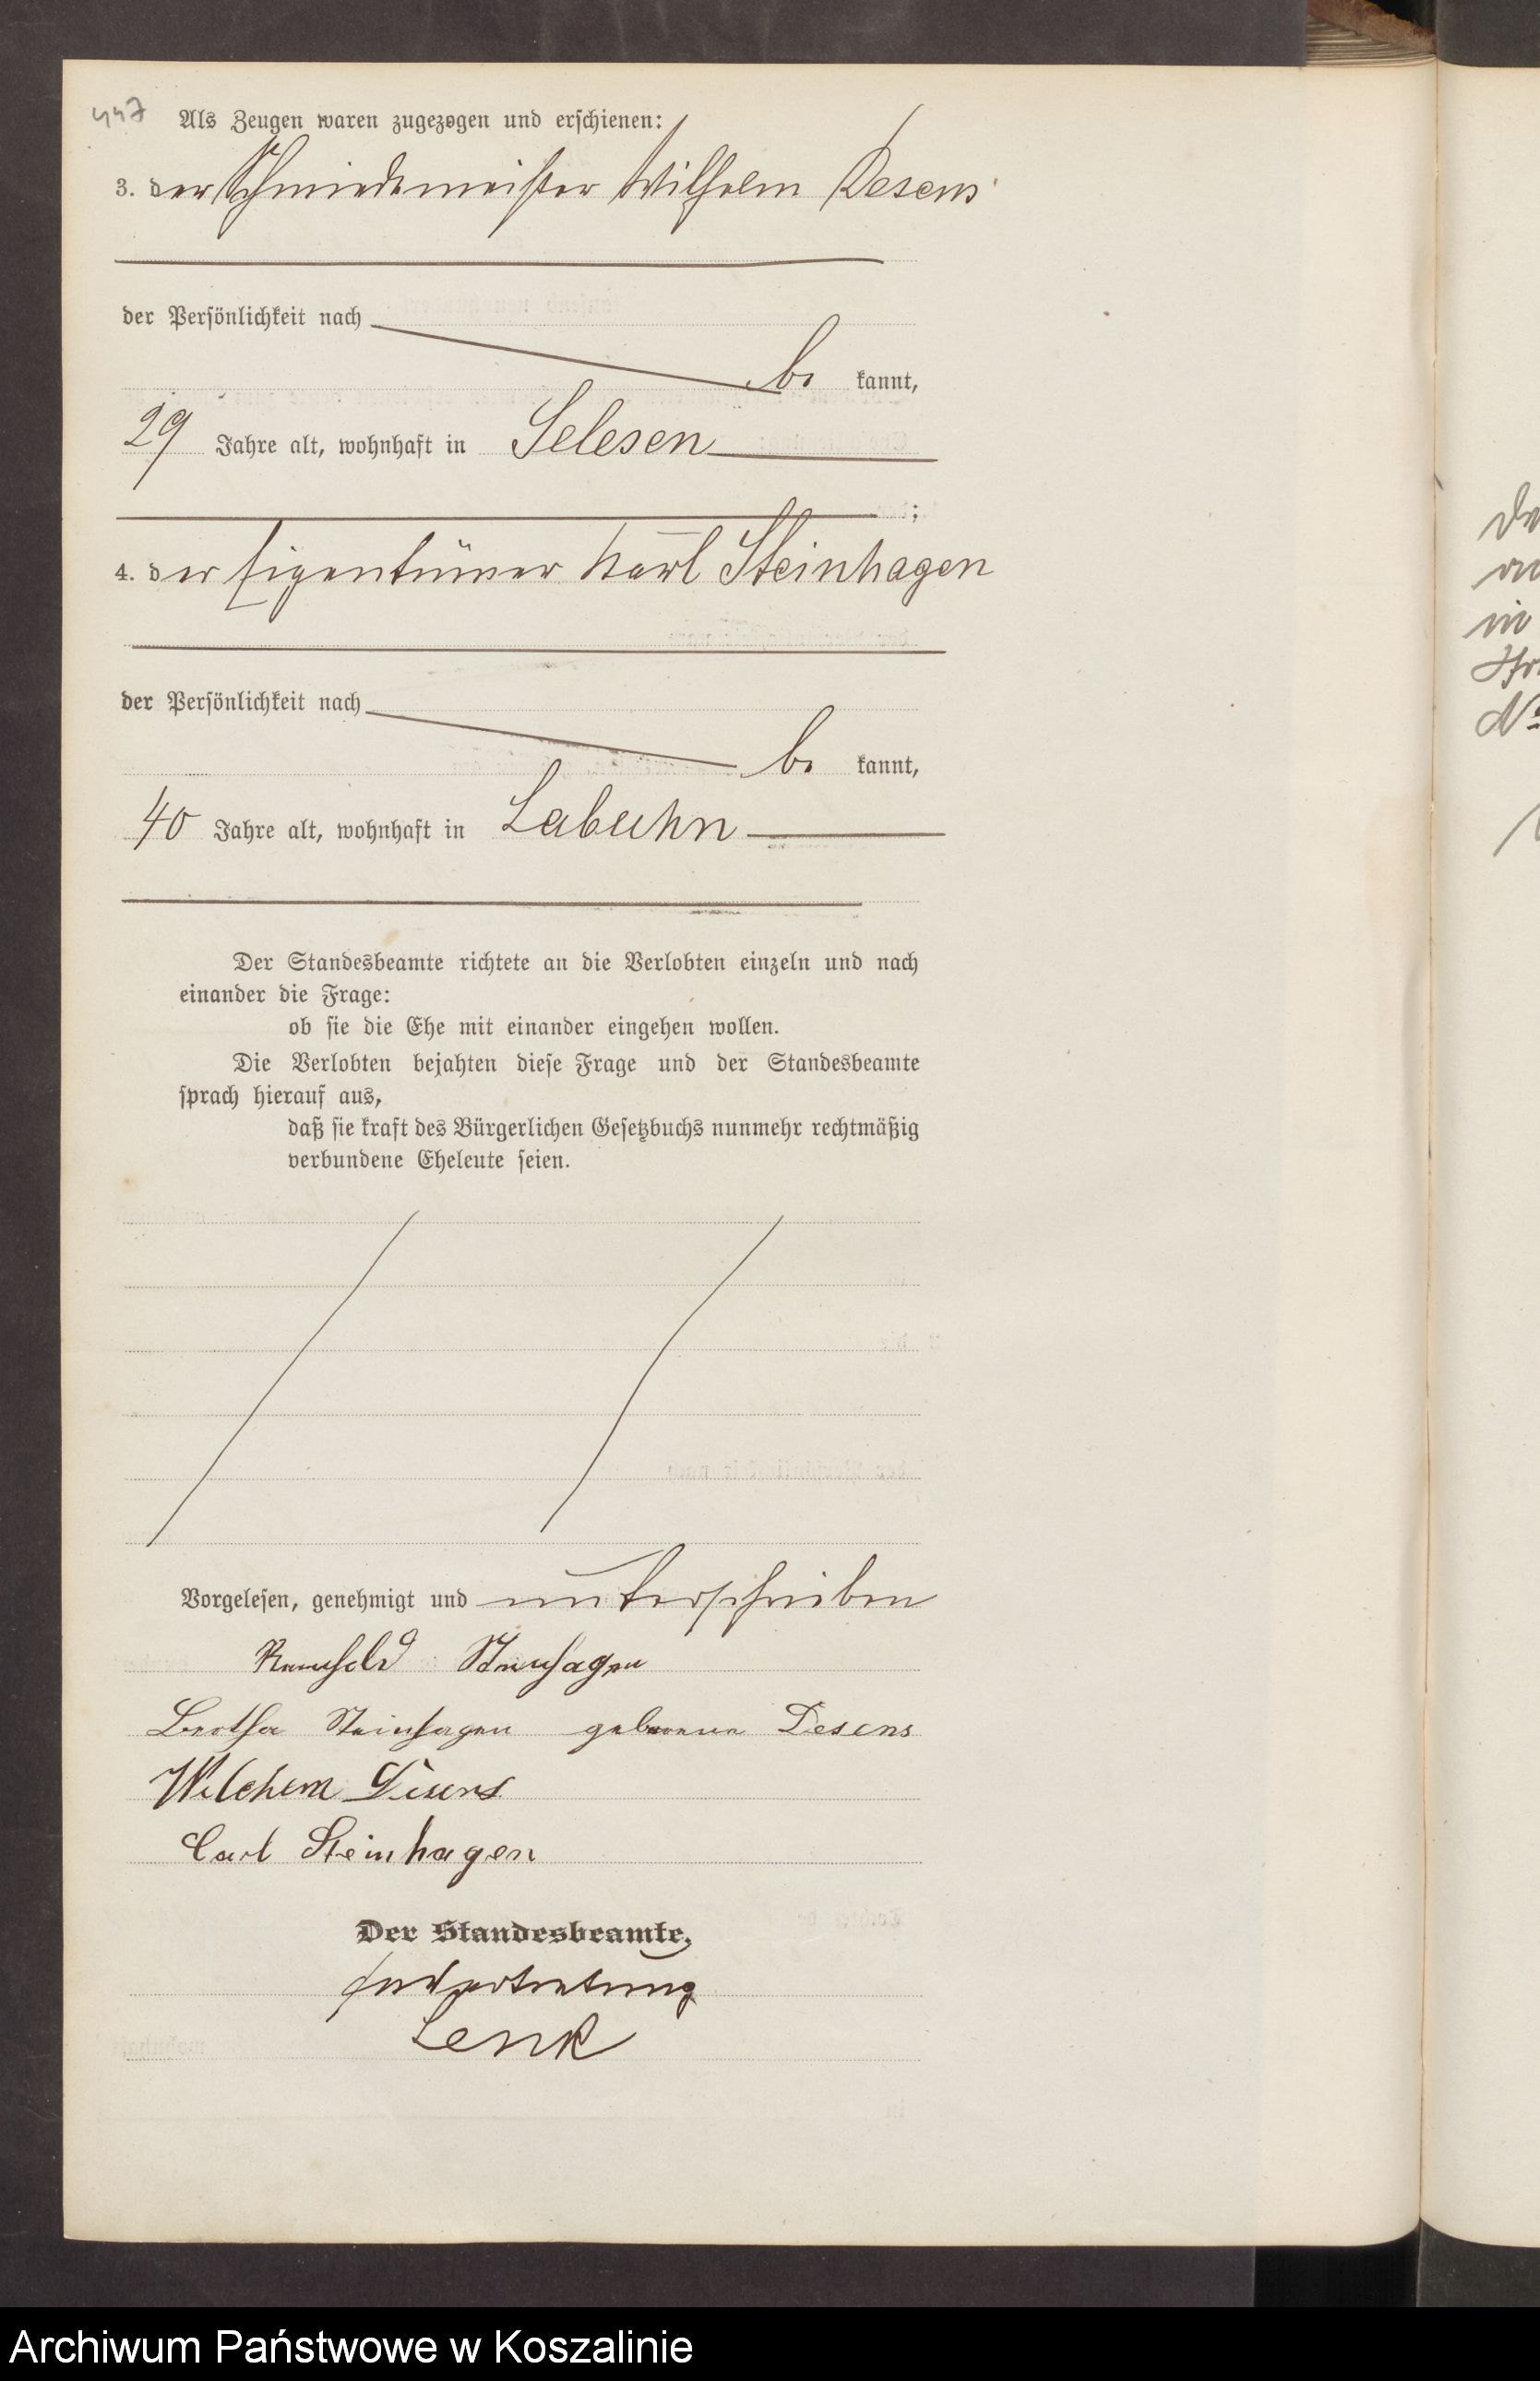 447 Als Zeugen waren zugezogen und erschienen:
3. der Schmiedemeister Wilhelm Desens
der Persönlichkeit nach
be kannt,
29 Jahre alt, wohnhaft in Selesen
;
4. der Eigentümer Karl Steinhagen
der Persönlichkeit nach
be kannt,
40 Jahre alt, wohnhaft in Labuhn
Der Standesbeamte richtete an die Verlobten einzeln und nach
einander die Frage:
ob sie die Ehe mit einander eingehen wollen.
Die Verlobten bejahten diese Frage und der Standesbeamte
sprach hierauf aus,
daß sie kraft des Bürgerlichen Gesetzbuchs nunmehr rechtmäßig
verbundene Eheleute seien.
Vorgelesen, genehmigt und unterschrieben
Steinhagen
Bertha Steinhagen geborene Desens
Wilchem Desens
Carl Steinhagen
Der Standesbeamte.
In Vertretung
Lenk
in
No
Archiwum Państwowe w Koszalinie